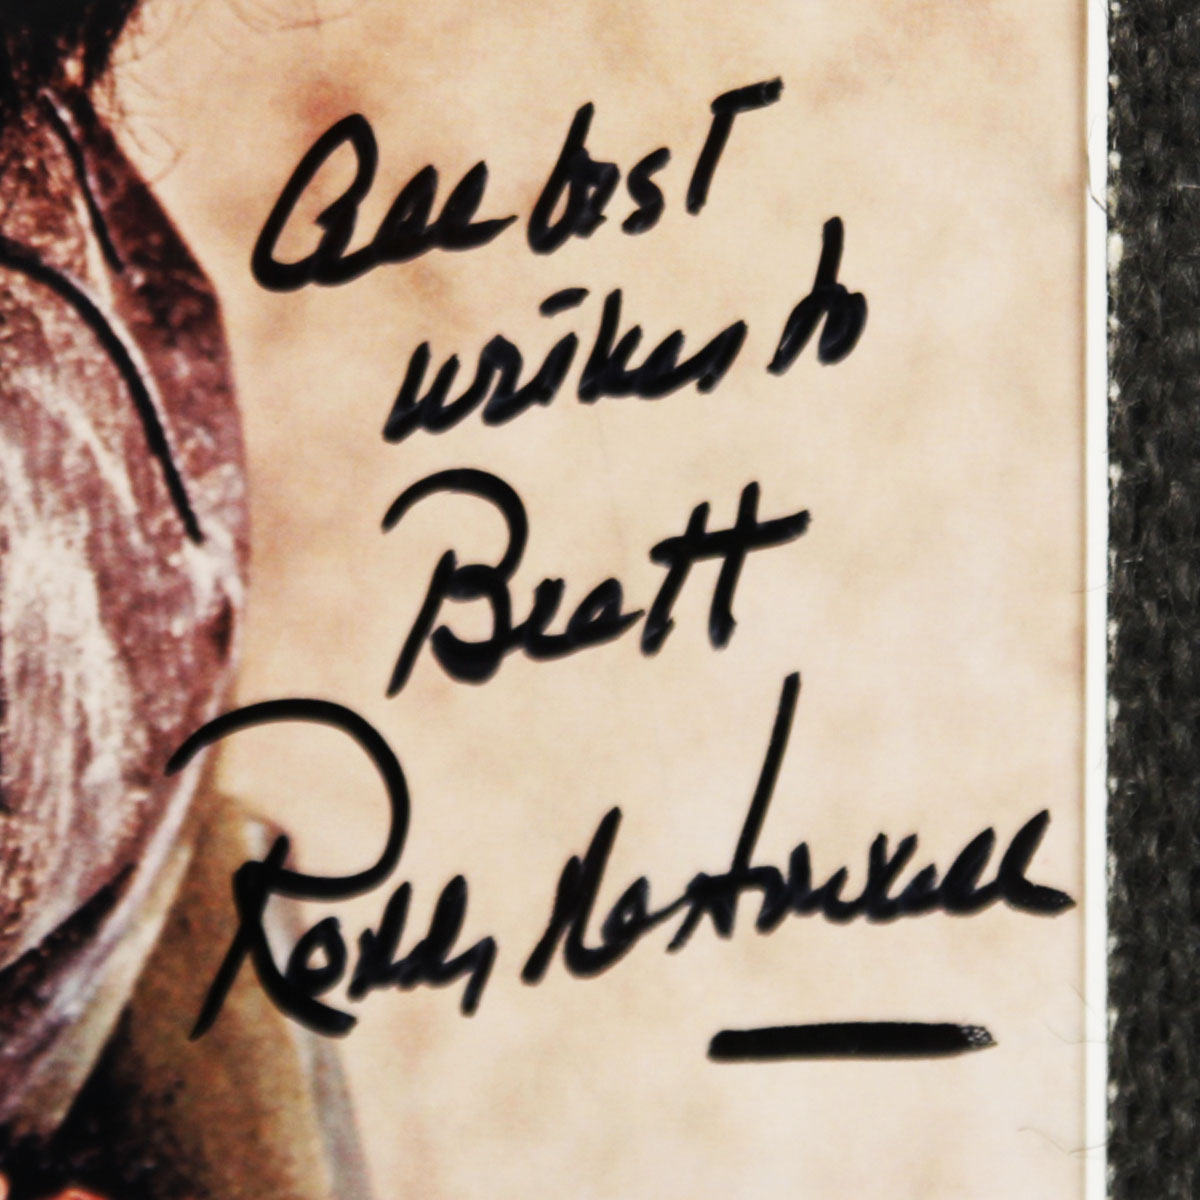 All best
wishes to
Brett
Roddy McDowall